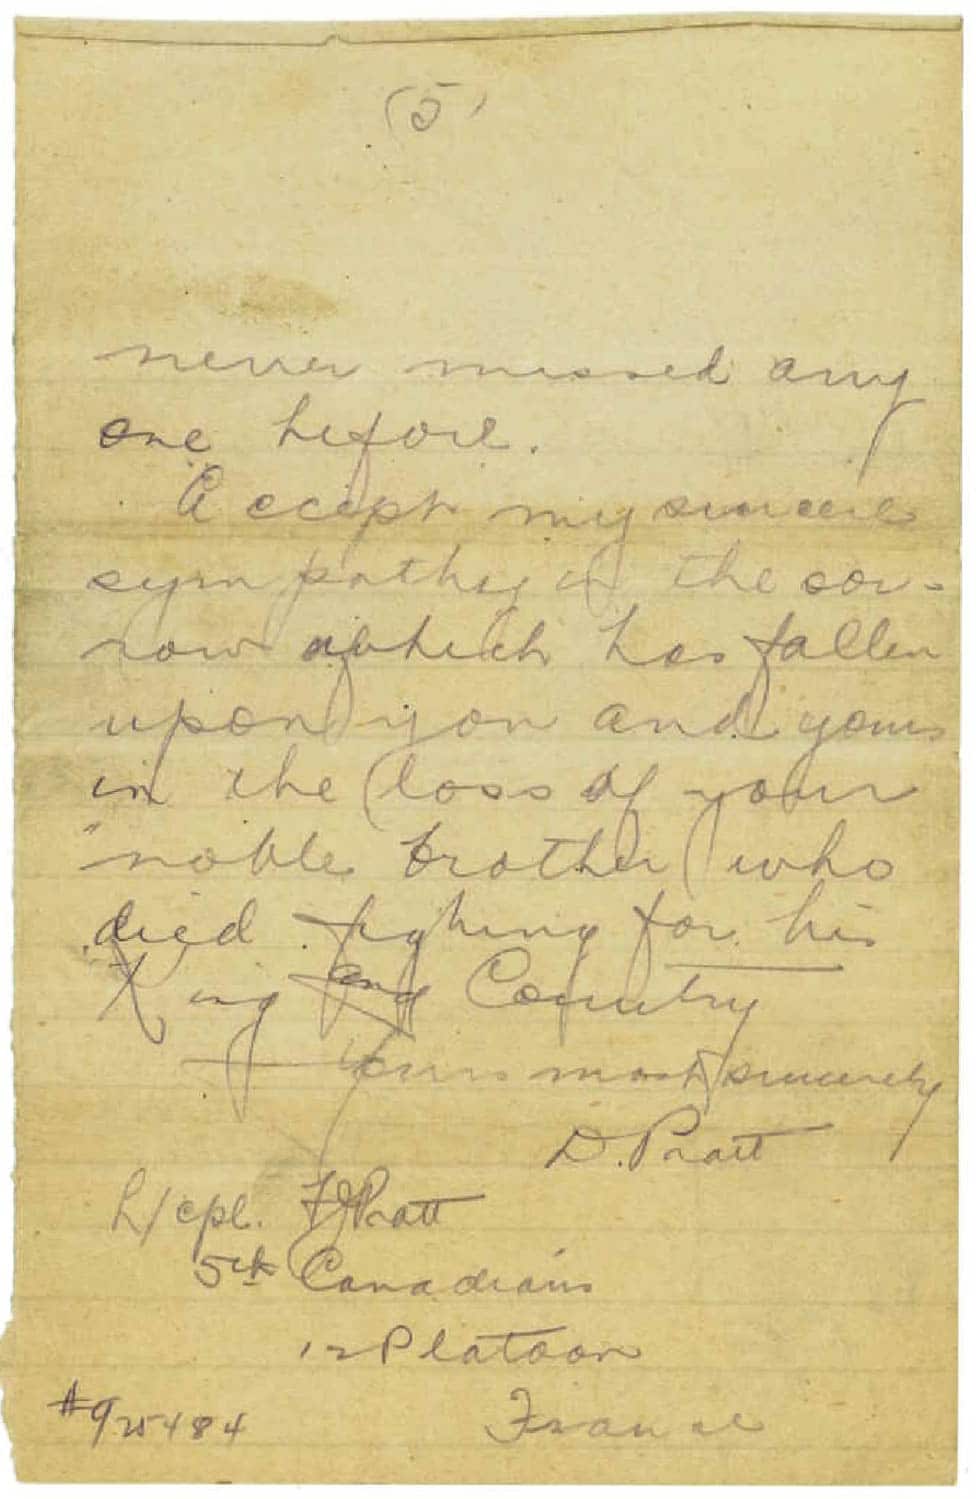 (5)
never missed any
one before.
Accept my sincere
sympathy in the sor-
row which has fallen
upon you and yours
in the loss of your
noble brother who
died fighing for his
King and Country
Yours most sincerely
D. Pratt
L/cpl. Pratt
5th Canadians
12 Platoon
#925484 France